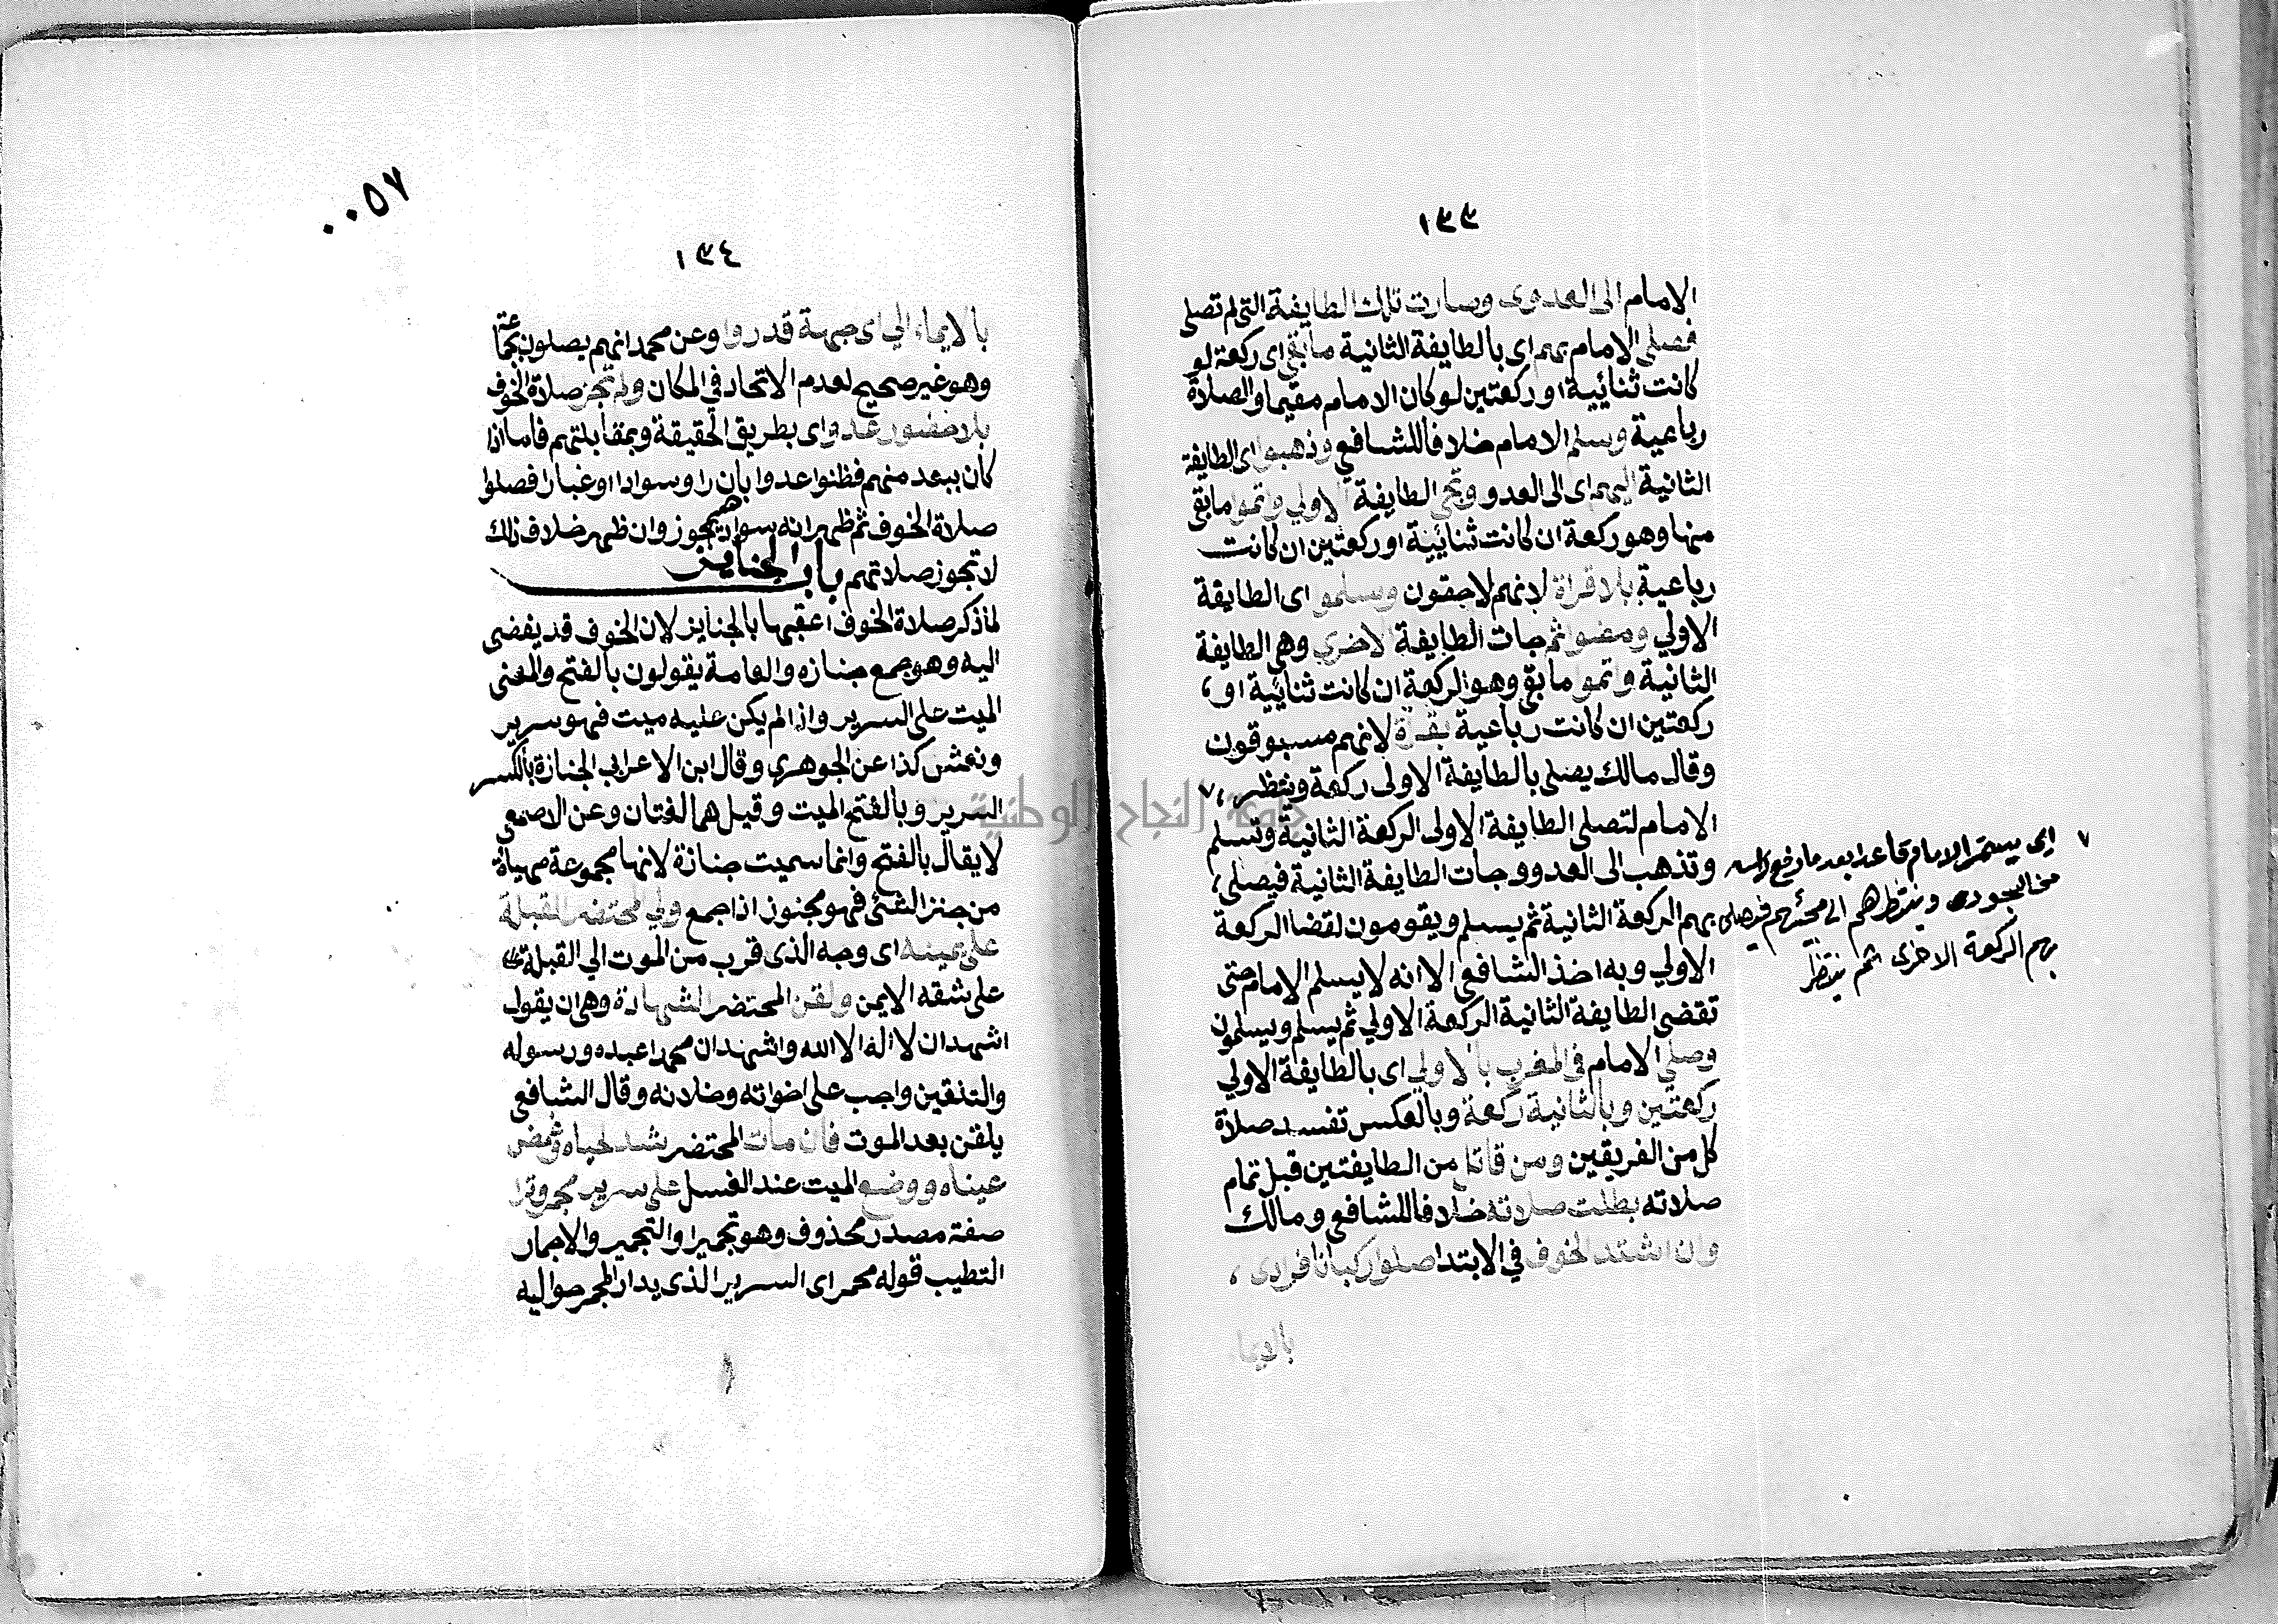 ١٣٣
الامام الى العدوى وصارت تلك الطايفة التى لم تصلى
فصلى الامام بهم اى بالطايفة الثانية مابقى اى ركعة لو
كانت ثنائية او ركعتين لو كان الامام مقيما والصلاة
رباعية وسلم الامام خلافا للشافعى وذهبوا اى الطايفة
الثانية اليهم اى الى العدو وتجى الطايفة الاولي واتموا مابقى
منها وهو ركعة ان كانت ثنائية او ركعتين ان كانت
رباعية بلا قراة لانهم لاحقون وسلموا اى الطايفة
الاولي ومضوا ثم جات الطايفة الاخري وهى الطايفة
الثانية واتمو مابقى وهو الركعة ان كانت ثنائية او،
ركعتين ان كانت رباعية بقراة لانهم مسبوقون
وقال مالك يصلى بالطايفة الاولى ركعة وينتظر، ٧
الامام لتصلى الطايفة الاولى الركعة الثانية وتسلم
وتذهب الى العدو وجات الطايفة الثانية فيصلى،
بهم الركعة الثانية ثم يسلم ويقومون لقضا الركعة
الاولي وبه اخذ الشافعى الا انه لا يسلم الامام حتى
تقضى الطايفة الثانية الركعة الاولي ثم يسلم ويسلمون
وصلي الامام فى المغرب بالاولي اى بالطايفة الاولي
ركعتين وبالثانية ركعة وبالعكس تفسد صلاة
كل من الفريقين ومن قاتل من الطايفتين قبل تمام
صلاته بطلت صلاته خلافا للشافعى ومالك
وان اشتد الخوف في الابتدا صلوا ركبانا فرادى،
بالايما
٧ اى يستمر الامام قاعدا بعد ما رفع راسه
من السجود وينتظرهم الى مجئهم فيصلى
بهم الركعة الاخرى ثم ينتظر
٠٠٥٧
١٣٤
بالايماء الي اى جهة قدروا وعن محمد انهم يصلون بجماعة
وهو غير صحيح لعدم الاتحاد في المكان ولم تجز صلاة الخوف
بلا حضور عدو اى بطريق الحقيقة وبمقابلتهم فاما اذا
كان ببعد منهم فظنوا عدوا بان راو سوادا او غبارا فصلوا
صلاة الخوف ثم ظهر انه سوادهم يجوز وان ظهر خلاف ذلك
لا تجوز صلاتهم باب الجنايز
لما ذكر صلاة الخوف اعقبها بالجنايز لان الخوف قد يفضى
اليه وهو جمع جنازه والعامة يقولون بالفتح والمعنى
الميت على السرير واذا لم يكن عليه ميت فهو سرير
ونعش كذا عن الجوهري وقال ابن الاعرابي الجنازة بالكسر
السرير وبالفتح الميت وقيل هما لغتان وعن الاصمعى
لا يقال بالفتح وانما سميت جنازة لانها مجموعة مهياة
من جنز الشئى فهو مجنوز اذا جمع ولي المحتضر القبلة
على يمينه اى وجه الذى قرب من الموت الي القبلة
على شقه الايمن ولقن المحتضر الشهادة وهى ان يقول
اشهد ان لا اله الا الله واشهد ان محمدا عبده ورسوله
والتلقين واجب على اخواته وخلانه وقال الشافعى
يلقن بعد الموت فان مات المحتضر شد لحياه وغمض
عيناه ووضع الميت عند الغسل على سرير مجمر وترا
صفة مصدر محذوف وهو تجميرا والتجمير والاجمار
التطيب قوله مجمر اى السرير الذى يدار المجمر حواليه
جامعة النجاح الوطنية